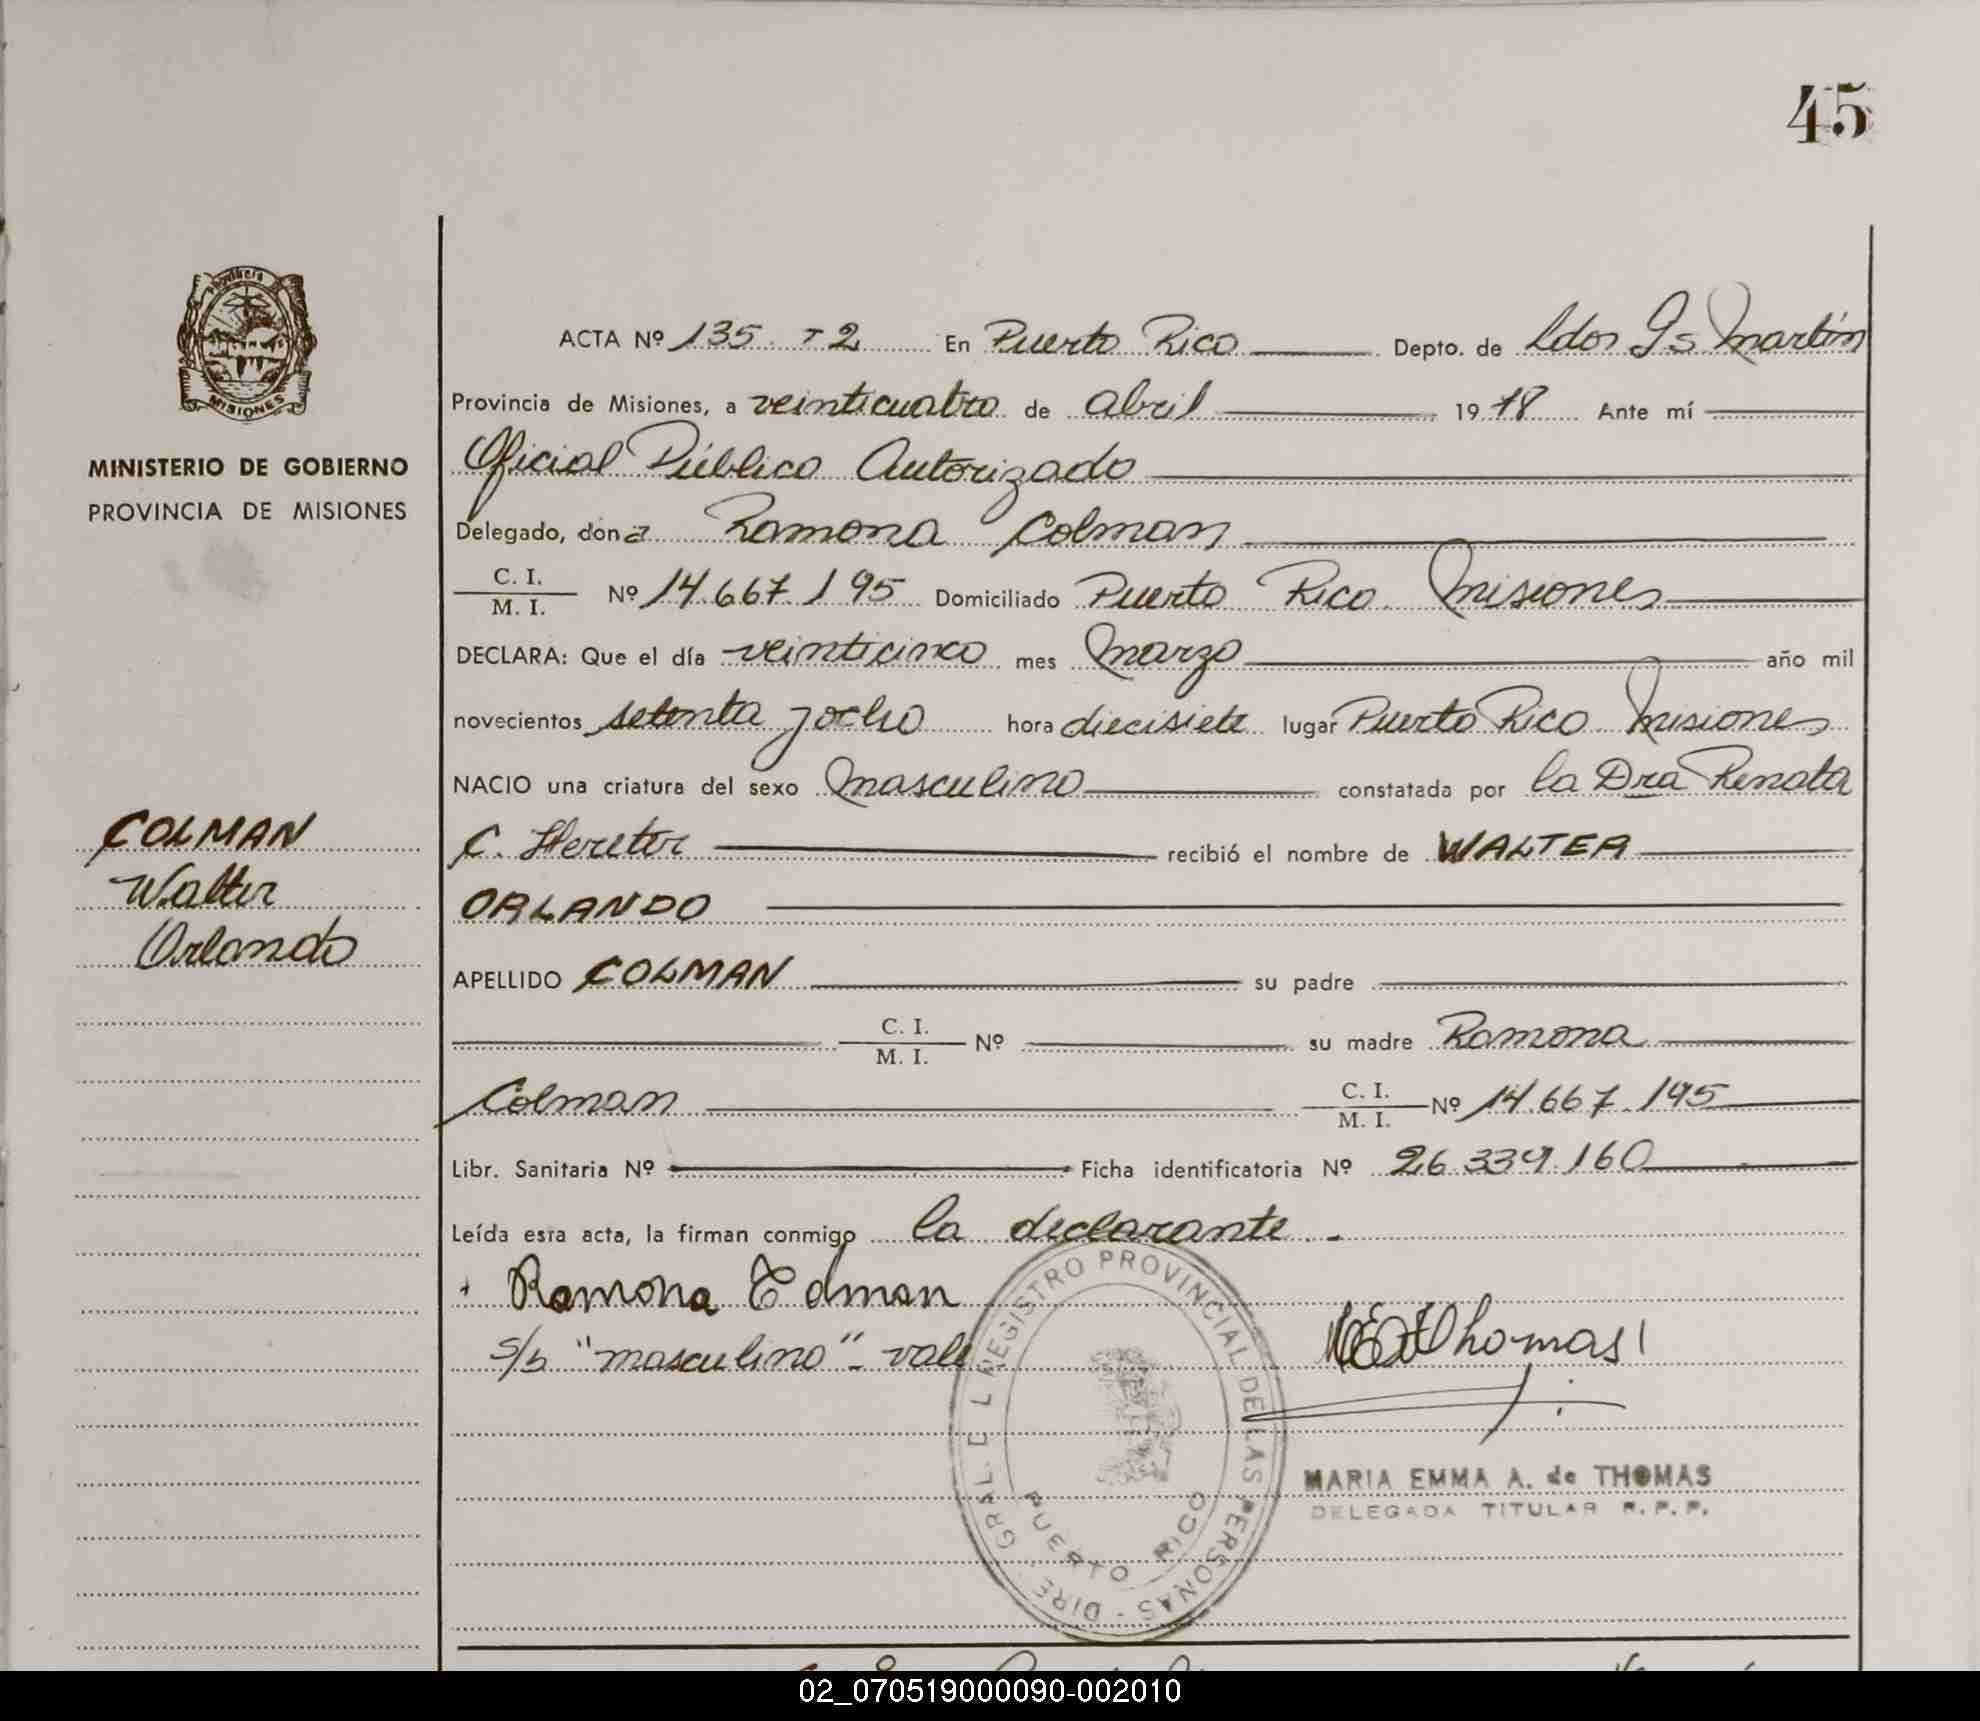 45
Provincia
MISIONES
MINISTERIO DE GOBIERNO
PROVINCIA DE MISIONES
COLMAN
Walter
Orlando
ACTA Nº 135 T 2 En Puerto Rico Depto. de Ldor Gs Martín
Provincia de Misiones, a veinticuatro de abril 1978 Ante mí
Oficial Público Autorizado
Delegado, dona Ramona Colman
C. I.
M. I. Nº 14.667.195 Domiciliado Puerto Rico Misiones
DECLARA: Que el día veinticinco mes Marzo año mil
novecientos setenta y ocho hora diecisiete lugar Puerto Rico Misiones
NACIO una criatura del sexo masculino constatada por la Dra Renata
C. Hereter recibió el nombre de WALTER
ORLANDO
APELLIDO COLMAN su padre
C. I.
M. I. Nº su madre Ramona
Colman C. I.
M. I. Nº 14.667.195
Libr. Sanitaria Nº Ficha identificatoria Nº 26.339.160
Leída esta acta, la firman conmigo la declarante.-
Ramona Colman
s/b "masculino"- vale
Thomas
MARIA EMMA A. de THOMAS
DELEGADA TITULAR R. P. P.
REGISTRO PROVINCIAL DE LAS PERSONAS - DIRE. GRAL. D L
PUERTO RICO
02_070519000090-002010